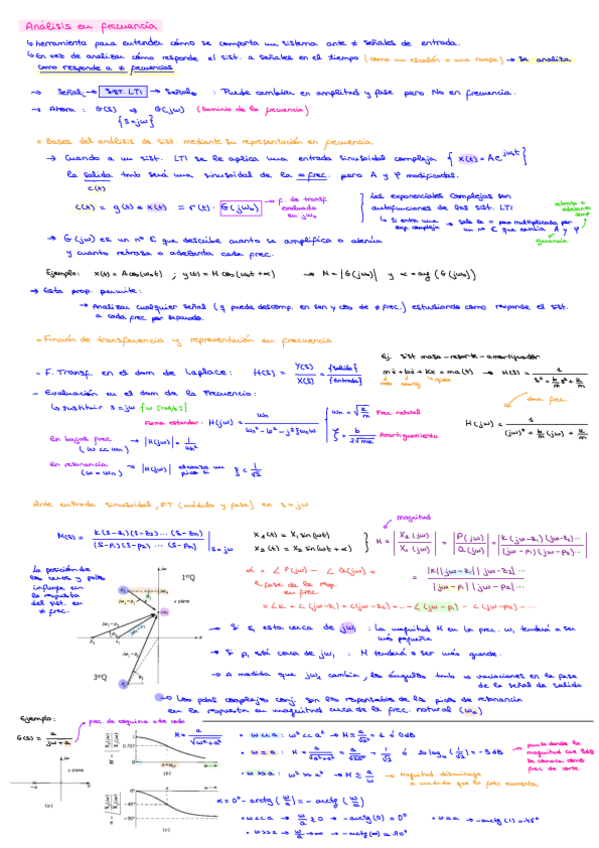 Análisis en frecuencia
↳ herramienta para entender cómo se comporta un sistema ante ≠ señales de entrada.
↳ En vez de analizar cómo responde el sist. a señales en el tiempo (como un escalón o una rampa) → se analiza
como responde a ≠ frecuencias
→ Señal → SIST. LTI → Señal : Puede cambiar en amplitud y fase pero No en frecuencia.
→ Ahora : G(s) ⇒ G(jω) (Dominio de la frecuencia)
{s=jω}
Bases del análisis de sist. mediante su representación en frecuencia
→ Cuando a un sist. LTI se le aplica una entrada sinusoidal compleja { x(t) = Ae^jωt }
la salida tmb será una sinusoidal de la = frec. pero A y φ modificadas.
c(t)
c(t) = g(t) * x(t) = r(t) · G(jω₀)
→ F. de transf evaluada en jω₀
Las exponenciales complejas son
autofunciones de los sist. LTI
ganancia
→ G(jω) es un nº ℂ que describe cuanto se amplifica o atenúa
y cuanto retrasa o adelanta cada frec.
Ejemplo: x(t) = A cos(ω₀t) ; y(t) = M cos(ω₀t + α) → M = |G(jω₀)| y α = arg (G(jω₀))
→ Esta prop. permite:
→ Analizar cualquier señal (q pueda descomp. en sen y cos de ≠ frec.) estudiando como responde el sist.
a cada frec por separado.
Función de transferencia y representación en frecuencia
Ej. Sist masa-resorte-amortiguador
- F. Transf. en el dom de Laplace: H(s) = Y(s)/X(s) = {salida}/{entrada}
- Evaluación en el dom de la Frecuencia:
↳ sustituir s=jω {ω [rad/s]}
Forma estandar: H(jω) =
Frec natural
Amortiguamiento
En bajas frec
(ω << ωn)
En resonancia
(ω = ωn)
Ante entrada sinusoidal, FT (módulo y fase) en s=jω
magnitud
X₁(t) = X₁ sin(ωt)
X₂(t) = X₂ sin(ωt+α)
La posición de
los ceros y polos
influye en
la respuesta
del sist. en
≠ frec.
1ºQ
s plane
3ºQ
α = ∠P(jω) - ∠Q(jω) =
fase de la resp.
en frec.
→ Si z₁ esta cerca de jω₁ : La magnitud M en la frec. ω₁ tenderá a ser
más pequeña
→ Si p₁ está cerca de jω₁ : M tenderá a ser más grande.
→ A medida que jω₁ cambia, los ángulos tmb → variaciones en la fase
de la señal de salida
→ Los polos complejos conj. son los responsables de los picos de resonancia
en la respuesta en magnitud cerca de la frec. natural (ωn)
Ejemplo:
frec de esquina o de codo
G(s) = a/(jω+a)
s plane
(a)
0.707
(b)
0°
-45°
-90°
(c)
M = a/√(ω²+a²)
• ω << a : ω² << a² → M = a/√a² = 1 ó 0dB
• ω = a : M = a/√(a²+a²) = a/√2a² = 1/√2 ó 20 log₁₀(1/√2) = -3dB
punto donde la
magnitud cae 3dB
se conoce como
frec de corte
• ω >> a : ω² >> a² → M ≈ a/ω
Magnitud disminuye
a medida que la frec aumenta
α = 0° - arctg(ω/a) = - arctg(ω/a)
• ω << a → ω/a ≈ 0 → -arctg(0) = 0°
• ω = a → -arctg(1) = -45°
• ω >> a → ω/a → ∞ → -arctg(∞) = -90°